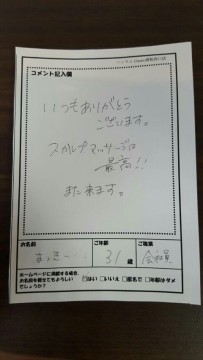 コメント記入欄
いつもありがとう
ございます。
スカルプマッサージは
最高!!
また来ます。
お名前
まっきー
ご年齢
31 歳
ご職業
会社員
ホームページに掲載する場合、
お名前を載せてもよろしい
でしょうか?
はい いいえ 匿名で 年齢はダメ